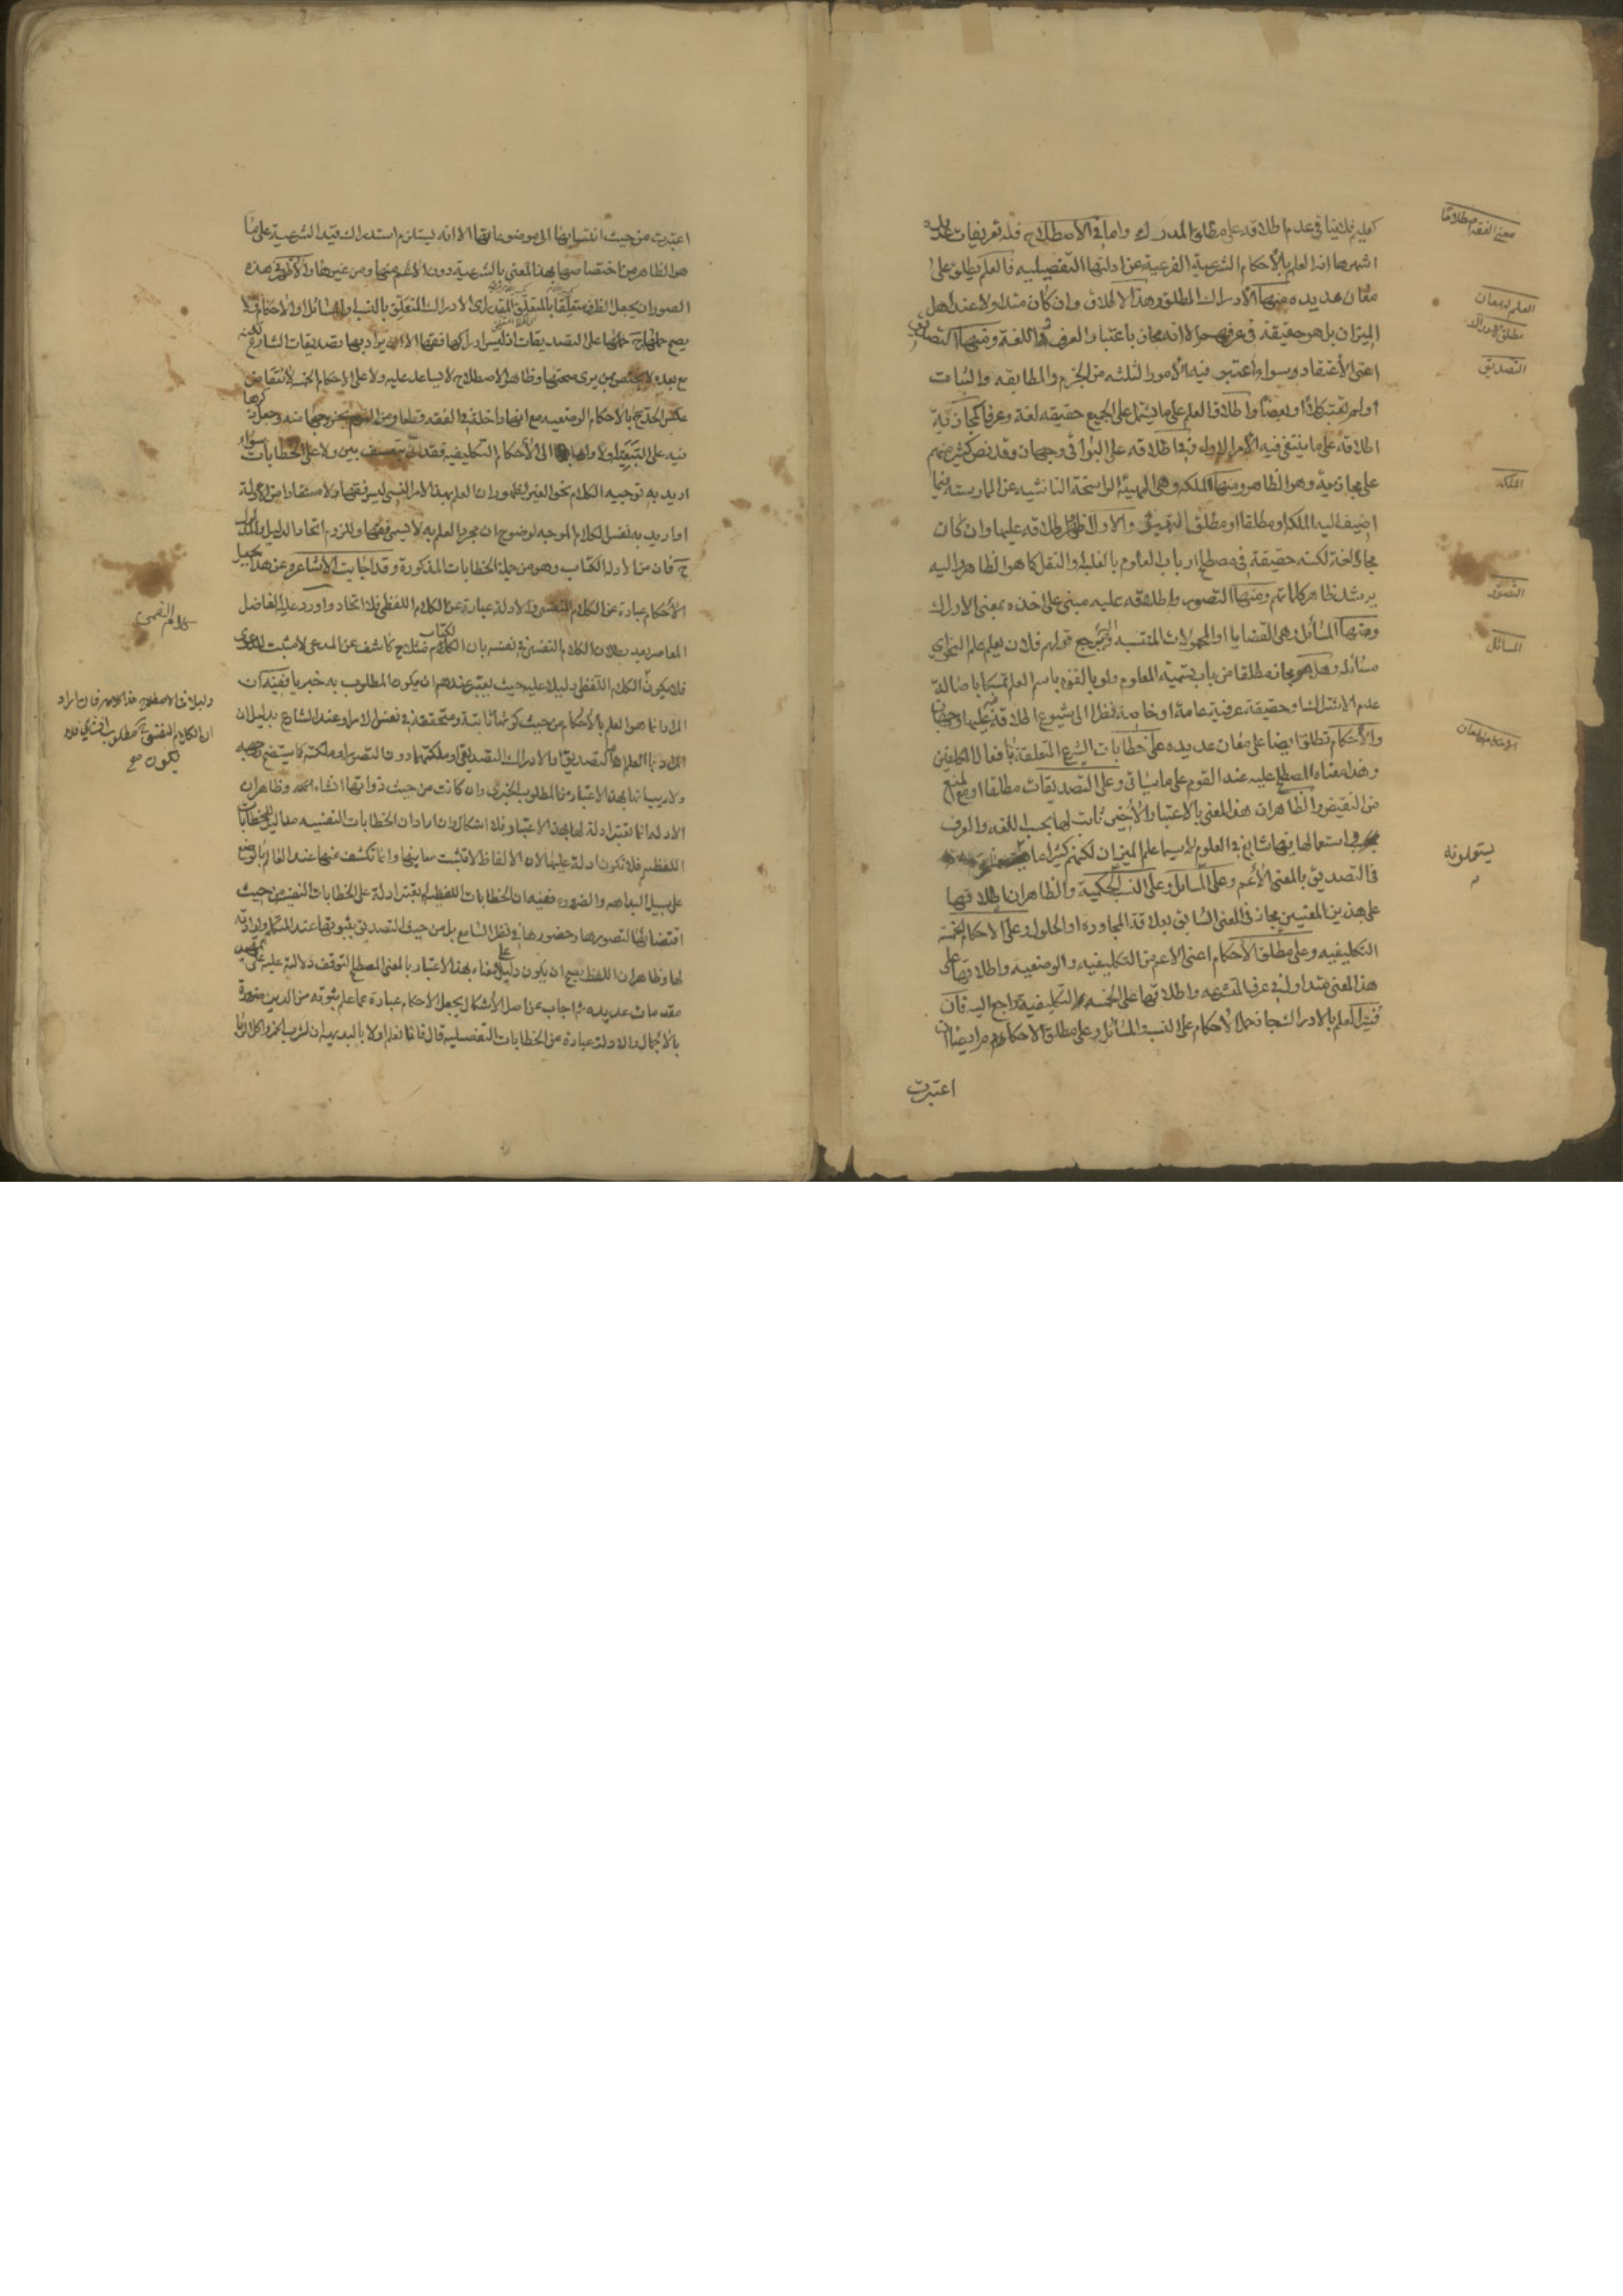 كعليم فلا ينافي عدم اطلاقه على مطلق المدرك واما في الاصطلاح فله تعريفات عديده
اشهرها انه العلم بالأحكام الشرعية الفرعية عن ادلتها التفصيليه فالعلم يطلق على
معان عديده منها الادراك المطلق وهذا الاطلاق وان كان متداولا عند اهل
الميزان بل هو حقيقة في عرفهم الا انه مجاز باعتبار العرف واللغة ومنها التصديق
اعني الأعتقاد وسواء اعتبر فيه الأمور الثلثه من الجزم والمطابقه والثبات
أولم تعتبر كلا او بعضا واطلاق العلم على ما يشتمل على الجميع حقيقه لغة وعرفا كمجازية
اطلاقه على ما ينتفي فيه الأمر الاول وفي اطلاقه على البواقي وجهان وقد نص كثير منهم
على مجازيته وهو الظاهر ومنها الملكه وهي الهيئة الراسخة الناشيه عن الممارسة فيما
اضيف اليه الملكه او مطلقا او مطلق التهيؤ والاول اظهر اطلاقه عليها وان كان
مجازا لغة لكنه حقيقة في مصطلح ارباب العلوم بالغلبة او النقل كما هو الظاهر واليه
يرشد ظاهر كلماتهم ومنها التصور واطلاقه عليه مبني على اخذه بمعنى الادراك
ومنها المسائل وهي القضايا او المحمولات المنتسبه قولهم فلان يعلم علم النحو اي
مسائله وهل هو مجاز مطلقا من باب تسمية المعلوم ولو بالقوه باسم العلم تمسكا باصالة
عدم الاشتراك او حقيقة عرفية عامة او خاصة نظرا الى شيوع اطلاقه عليها وجهان
والأحكام تطلق ايضا على معان عديده على خطابات الشرع المتعلقة بأفعال المكلفين
وهذا معناه المصطلح عليه عند القوم على ما سيأتي وعلى التصديقات مطلقا او مع المنع
من النقيض والظاهر ان هذا المعنى بالاعتبار الأخير ثابت لها بحسب اللغه والعرف
واستعمالها فيها شايع في العلوم لا سيما علم الميزان لكنهم كثيرا ما
في التصديق بالمعنى الأعم وعلى المسائل وعلى النسب الحكمية والظاهر ان اطلاقها
على هذين المعنيين مجاز في المعنى السابق بعلاقة المجاورة او الحلول وعلى الاحكام الخمسة
التكليفيه وعلى مطلق الأحكام اعني الاعم من التكليفيه والوضعيه واطلاقها على
هذا المعنى متداول في عرف المتشرعه واطلاقها على الخمسه التكليفية راجع اليه فان
فسر العلم بالادراك جاز حمل الأحكام على النسب والمسائل وعلى مطلق الاحكام ايضا ان
اعتبرت
معنى الفقه اصطلاحا
العلم له معان
مطلق الادراك
التصديق
الملكه
التصور
المسائل
يستعملونه
اعتبرت من حيث انتسابها الى موضوعاتها الا انه يستلزم استدراك قيد الشرعية على ما
هو الظاهر من اختصاصها بهذا المعنى بالشرعية دون الأعم منها ومن غيرها والأظهر في هذه
الصور ان يجعل الظرف متعلقا بالمتعلق المقدر اي الادراك المتعلق بالنسب او المسائل او الاحكام ولا
يصح حملها ح على التصديقات اذ ليس ادراكها فقها الا ان يراد بها تصديقات الشارع لكنه
مع بعده لا يختص بمن يرى صحتها وظاهر الاصطلاح لا يساعد عليه ولا على الاحكام الخمسة لانتقاض
عكس الحد ح بالاحكام الوضعيه مع انها داخلة في الفقه قطعا ومن التزم بخروجها منه وجعل ذكرها
فيه على التبعية او لا وارجاعها الى الأحكام التكليفيه فقد اتى بتعسف بين ولا على الخطابات سواء
اريد به توجيه الكلام نحو الغير لظهور ان العلم بهذا الامر النسبي ليس فقها ولا مستفادا من الأدلة
او اريد به نفس الكلام الموجه لوضوح ان مجرد العلم به لا يسمى فقها وللزوم اتحاد الدليل والمدلول
ح فان من الادلة الكتاب وهو من جملة الخطابات المذكورة وقد اجابت الأشاعره عن هذا بجعل
الأحكام عبارة عن الكلام النفسي والادلة عبارة عن الكلام اللفظي فلا اتحاد واورد عليه الفاضل
المعاصر بعد بطلان الكلام النفسي في نفسه بان الكتاب مثلا ح كاشف عن المدعى لا مثبت للدعوى
فلا يكون الكلام اللفظي دليلا عليه حيث يعتبر عندهم ان يكون المطلوب به خبريا ففيه ان
المراد انما هو العلم بالأحكام من حيث كونها ثابتة ومتحققة في نفس الامر او عند الشارع بدليل ان
المراد بالعلم هنا التصديق او الادراك التصديقي او ملكتهما دون التصور او ملكته كما يستضح وجهه
ولا ريب انها بهذا الاعتبار من المطلوب الخبري وان كانت من حيث ذواتها انشاء وظاهر ان
الادلة انما تعتبر ادلة لها بهذا الاعتبار فلا اشكال وان اراد ان الخطابات النفسيه مداليل للخطابات
اللفظيه فلا تكون ادلة عليها لان الالفاظ لا تثبت معانيها وانما تكشف عنها عند العالم بالوضع
على سبيل البداهه والضروره ففيه ان الخطابات اللفظيه لم يعتبر ادلة على الخطابات النفسيه من حيث
اقتضائها لتصورها وحضورها في نظر السامع بل من حيث التصديق بثبوتها عند المتكلم وارادته
لها وظاهر ان اللفظ يصح ان يكون دليلا على معناه بهذا الاعتبار بالمعنى المصطلح لتوقف دلالته عليه على
مقدمات عديده ثم اجاب عن اصل الأشكال بجعل الاحكام عبارة عما علم ثبوته من الدين ضرورة
بالأجمال والادلة عبارة عن الخطابات التفصيليه قال فانا نعلم اولا بالبديهه ان لشرب الخمر واكل الربا
كلام النفسي